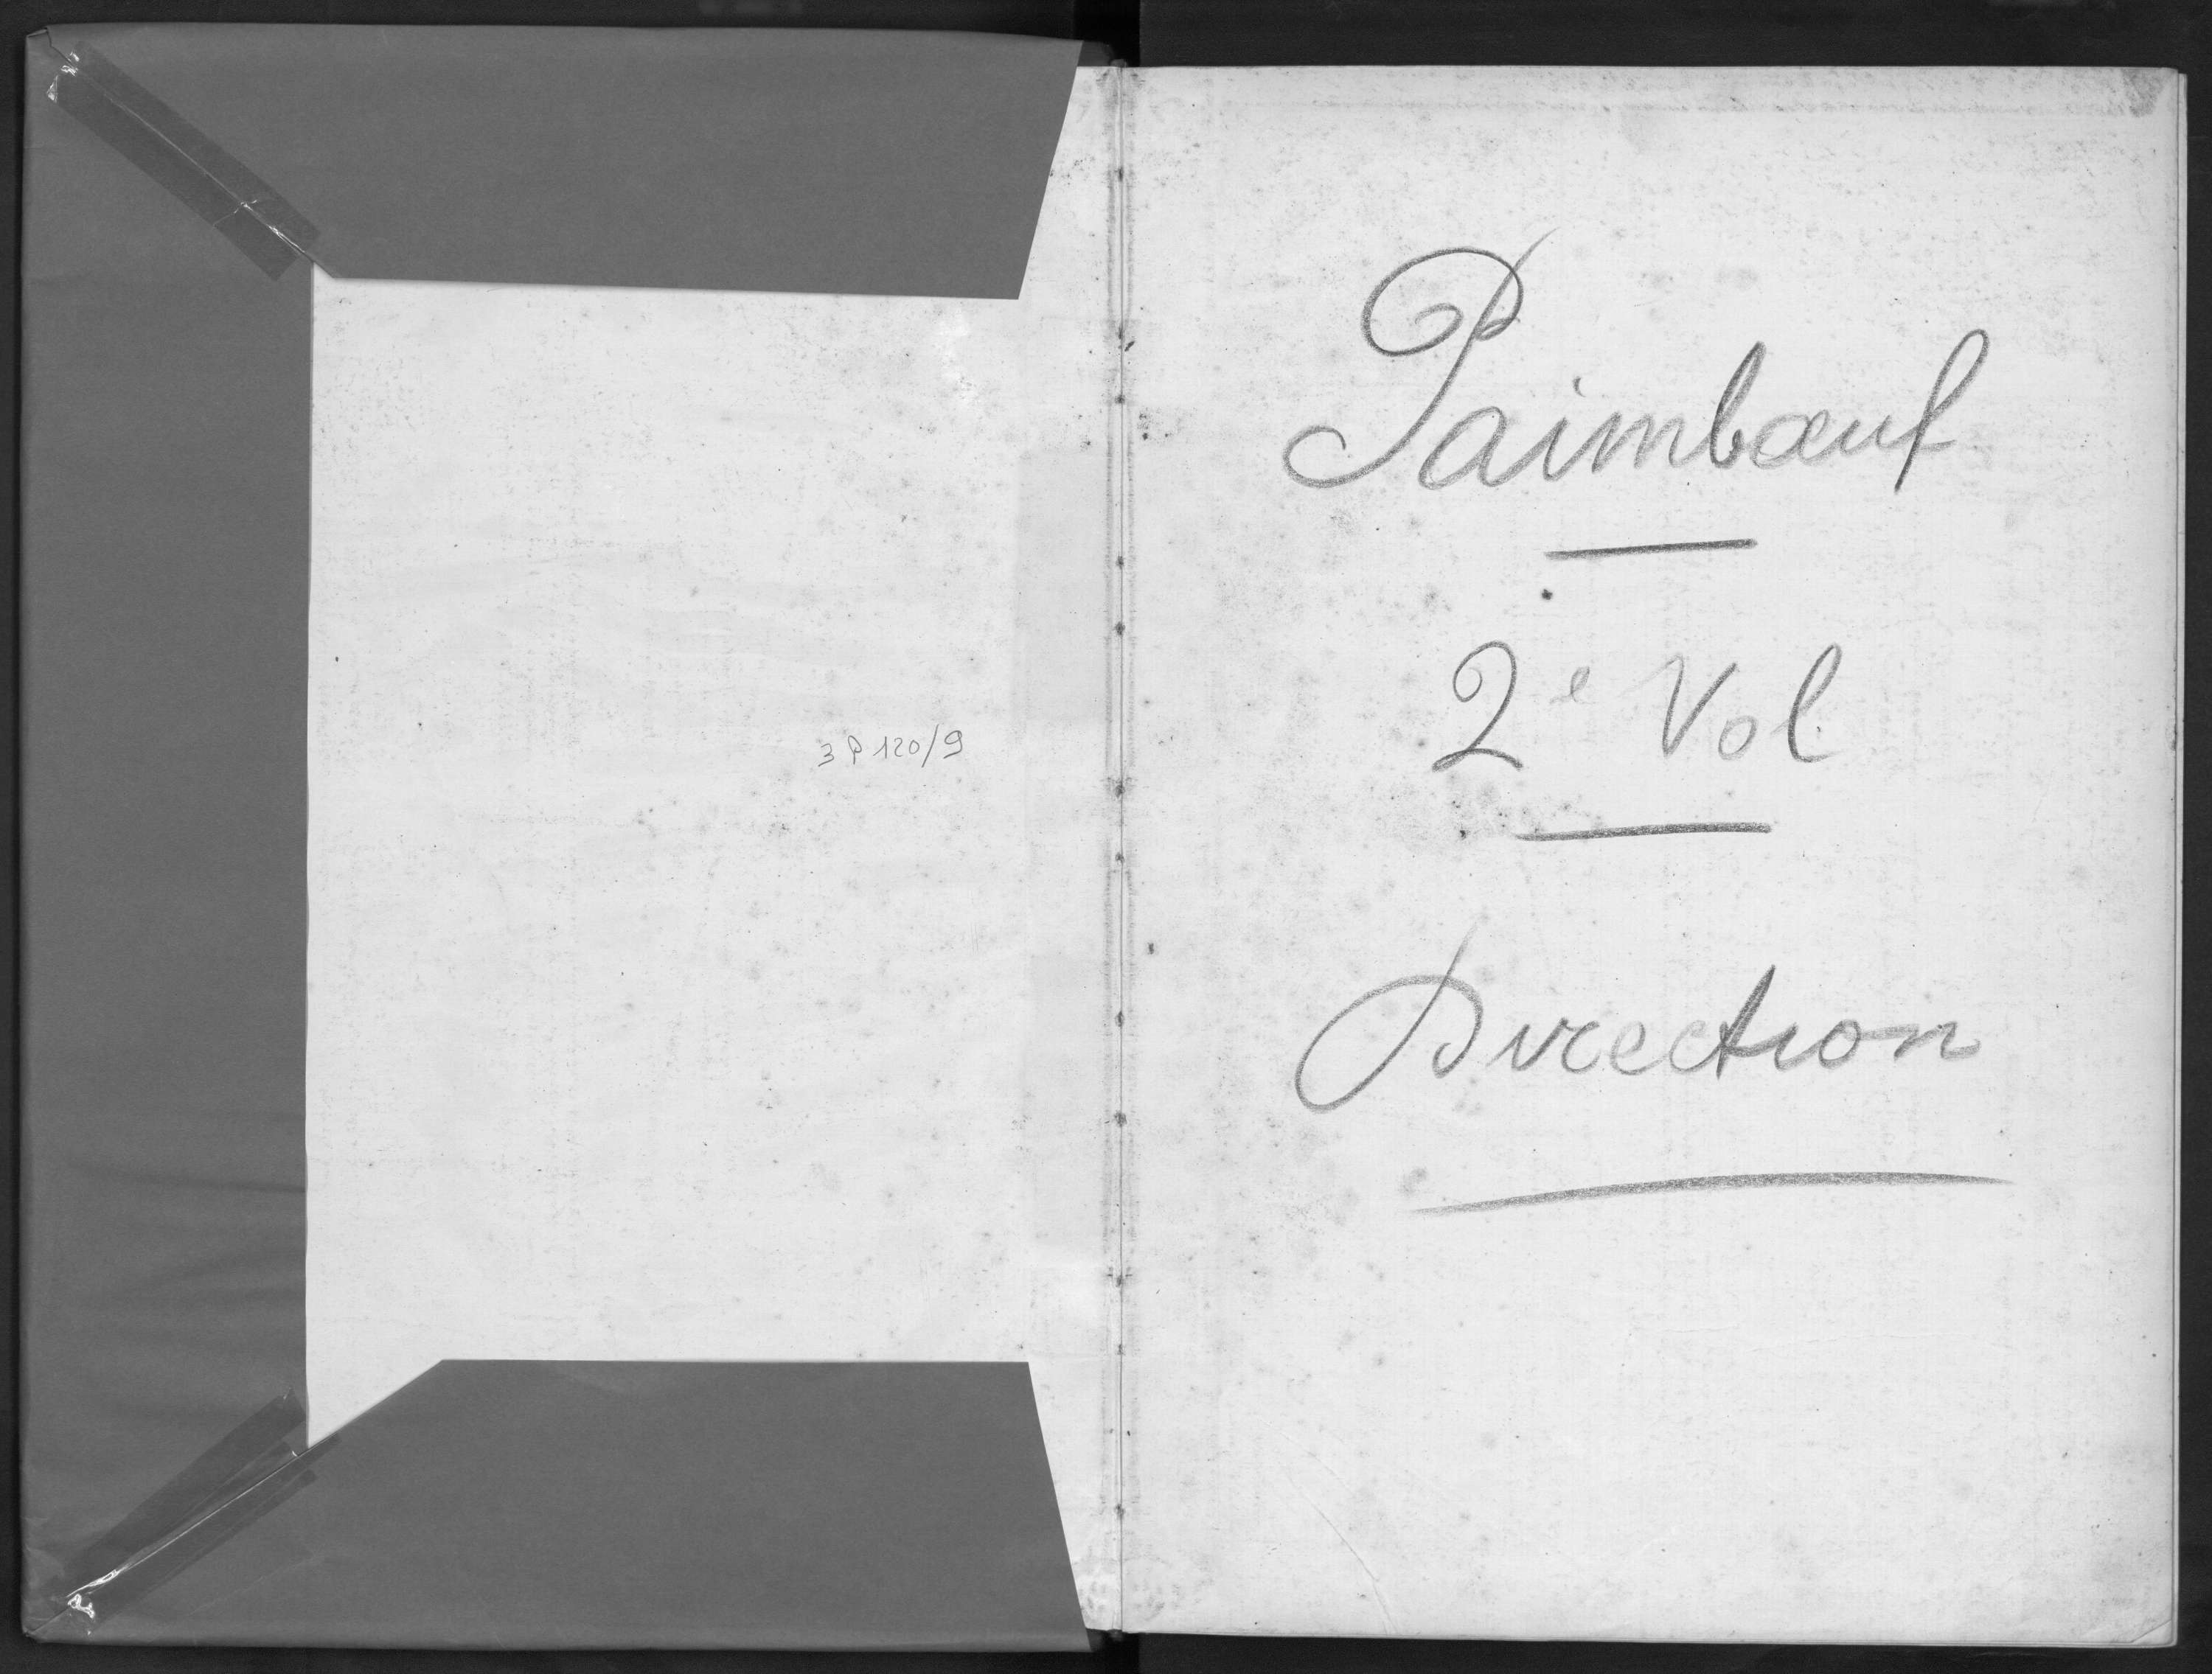 3 P 120/9
Paimbœuf
2e Vol
Direction